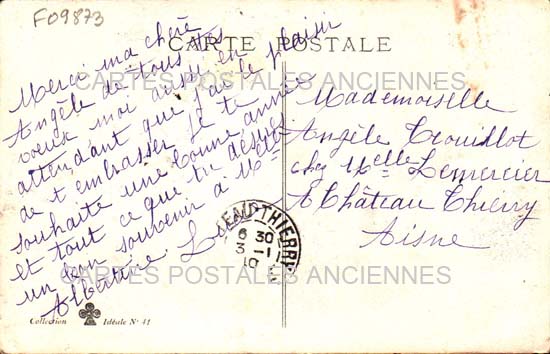 F09873
CARTE POSTALE
CARTES POSTALES ANCIENNES
Merci ma chère
Angèle de tous tes
voeux moi aussi en
attendant que j'ai le plaisir
de t'embrasser je te
souhaite une bonne année
et tout ce que tu désires
un bon souvenir à Melle
Albertine.
Mademoiselle
Angèle Trouillot
chez Melle Lemercier
A Château Thierry
Aisne
EAU-THIERRY
6 30
3 - 1
10
CARTES POSTALES ANCIENNES
Collection Idéale N° 41